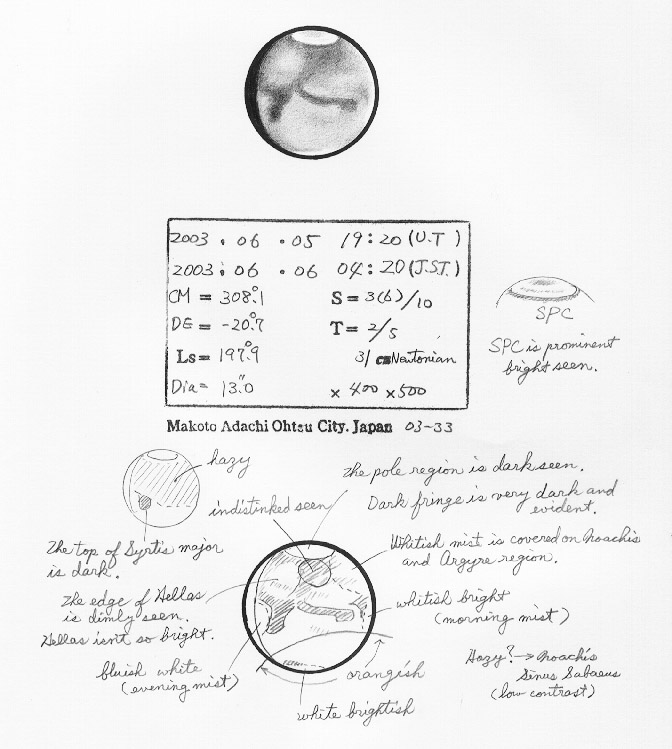 2003 . 06 . 05 19:20 (U.T)
2003 : 06 . 06 04:20 (J.S.T.)
CM = 308.°1 S = 3(6)/10
DE = -20.°7 T = 2/5
Ls = 197.°9 31 cm Newtonian
Dia = 13.″0 × 400 × 500
Makoto Adachi Ohtsu City. Japan 03-33
SPC
SPC is prominent
bright seen.
hazy
the pole region is dark seen.
indistinked seen
Dark fringe is very dark and
evident.
The top of Syrtis major
is dark.
Whitish mist is covered on Noachis
and Argyre region.
The edge of Hellas
is dimly seen.
Hellas isn't so bright.
whitish bright
(morning mist)
bluish white
(evening mist)
orangish
white brightish
Hazy? → Noachis
Sinus Sabaeus
(low contrast)